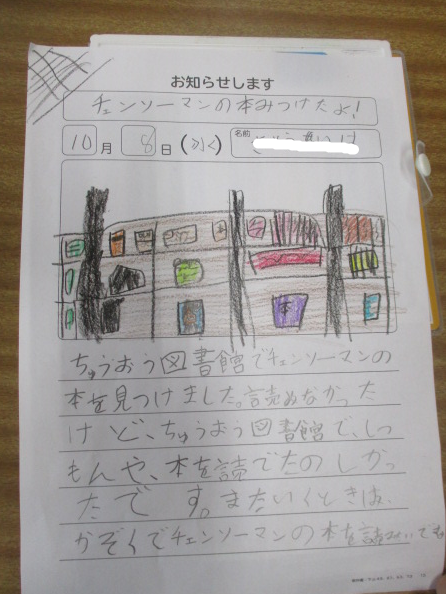 お知らせします
チェンソーマンの本みつけたよ!
10月8日(水)名前
本
ちゅうおう図書館でチェンソーマンの
本を見つけました。読めなかった
けど、ちゅうおう図書館で、しつ
もんや、本を読でたのしかっ
たです。またいくときは、
かぞくでチェンソーマンの本を読みいても